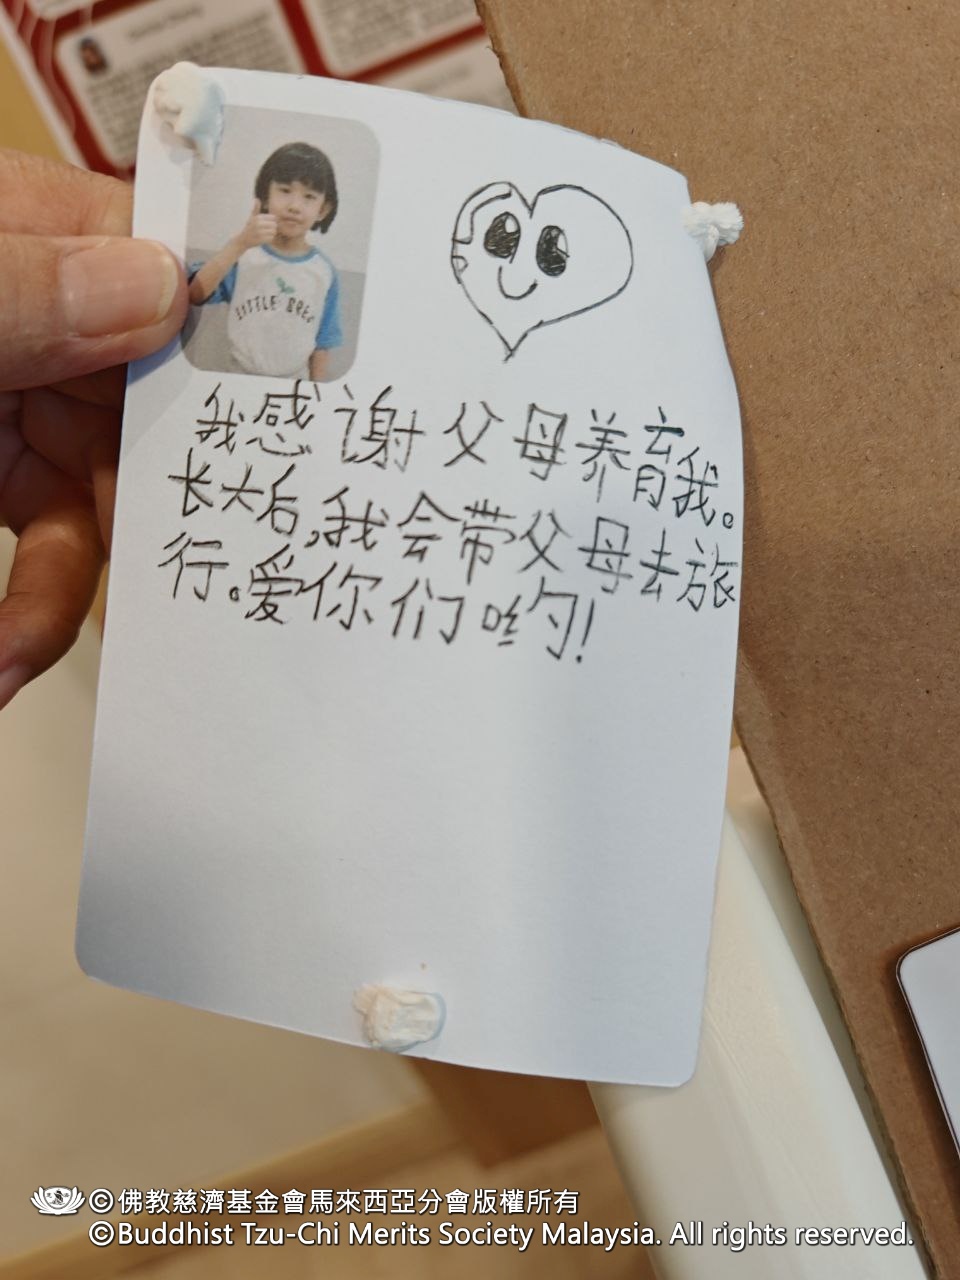 LITTLE BREE
我感谢父母养育我。
长大后,我会带父母去旅
行。爱你们哟!
©佛教慈濟基金會馬來西亞分會版權所有
©Buddhist Tzu-Chi Merits Society Malaysia. All rights reserved.